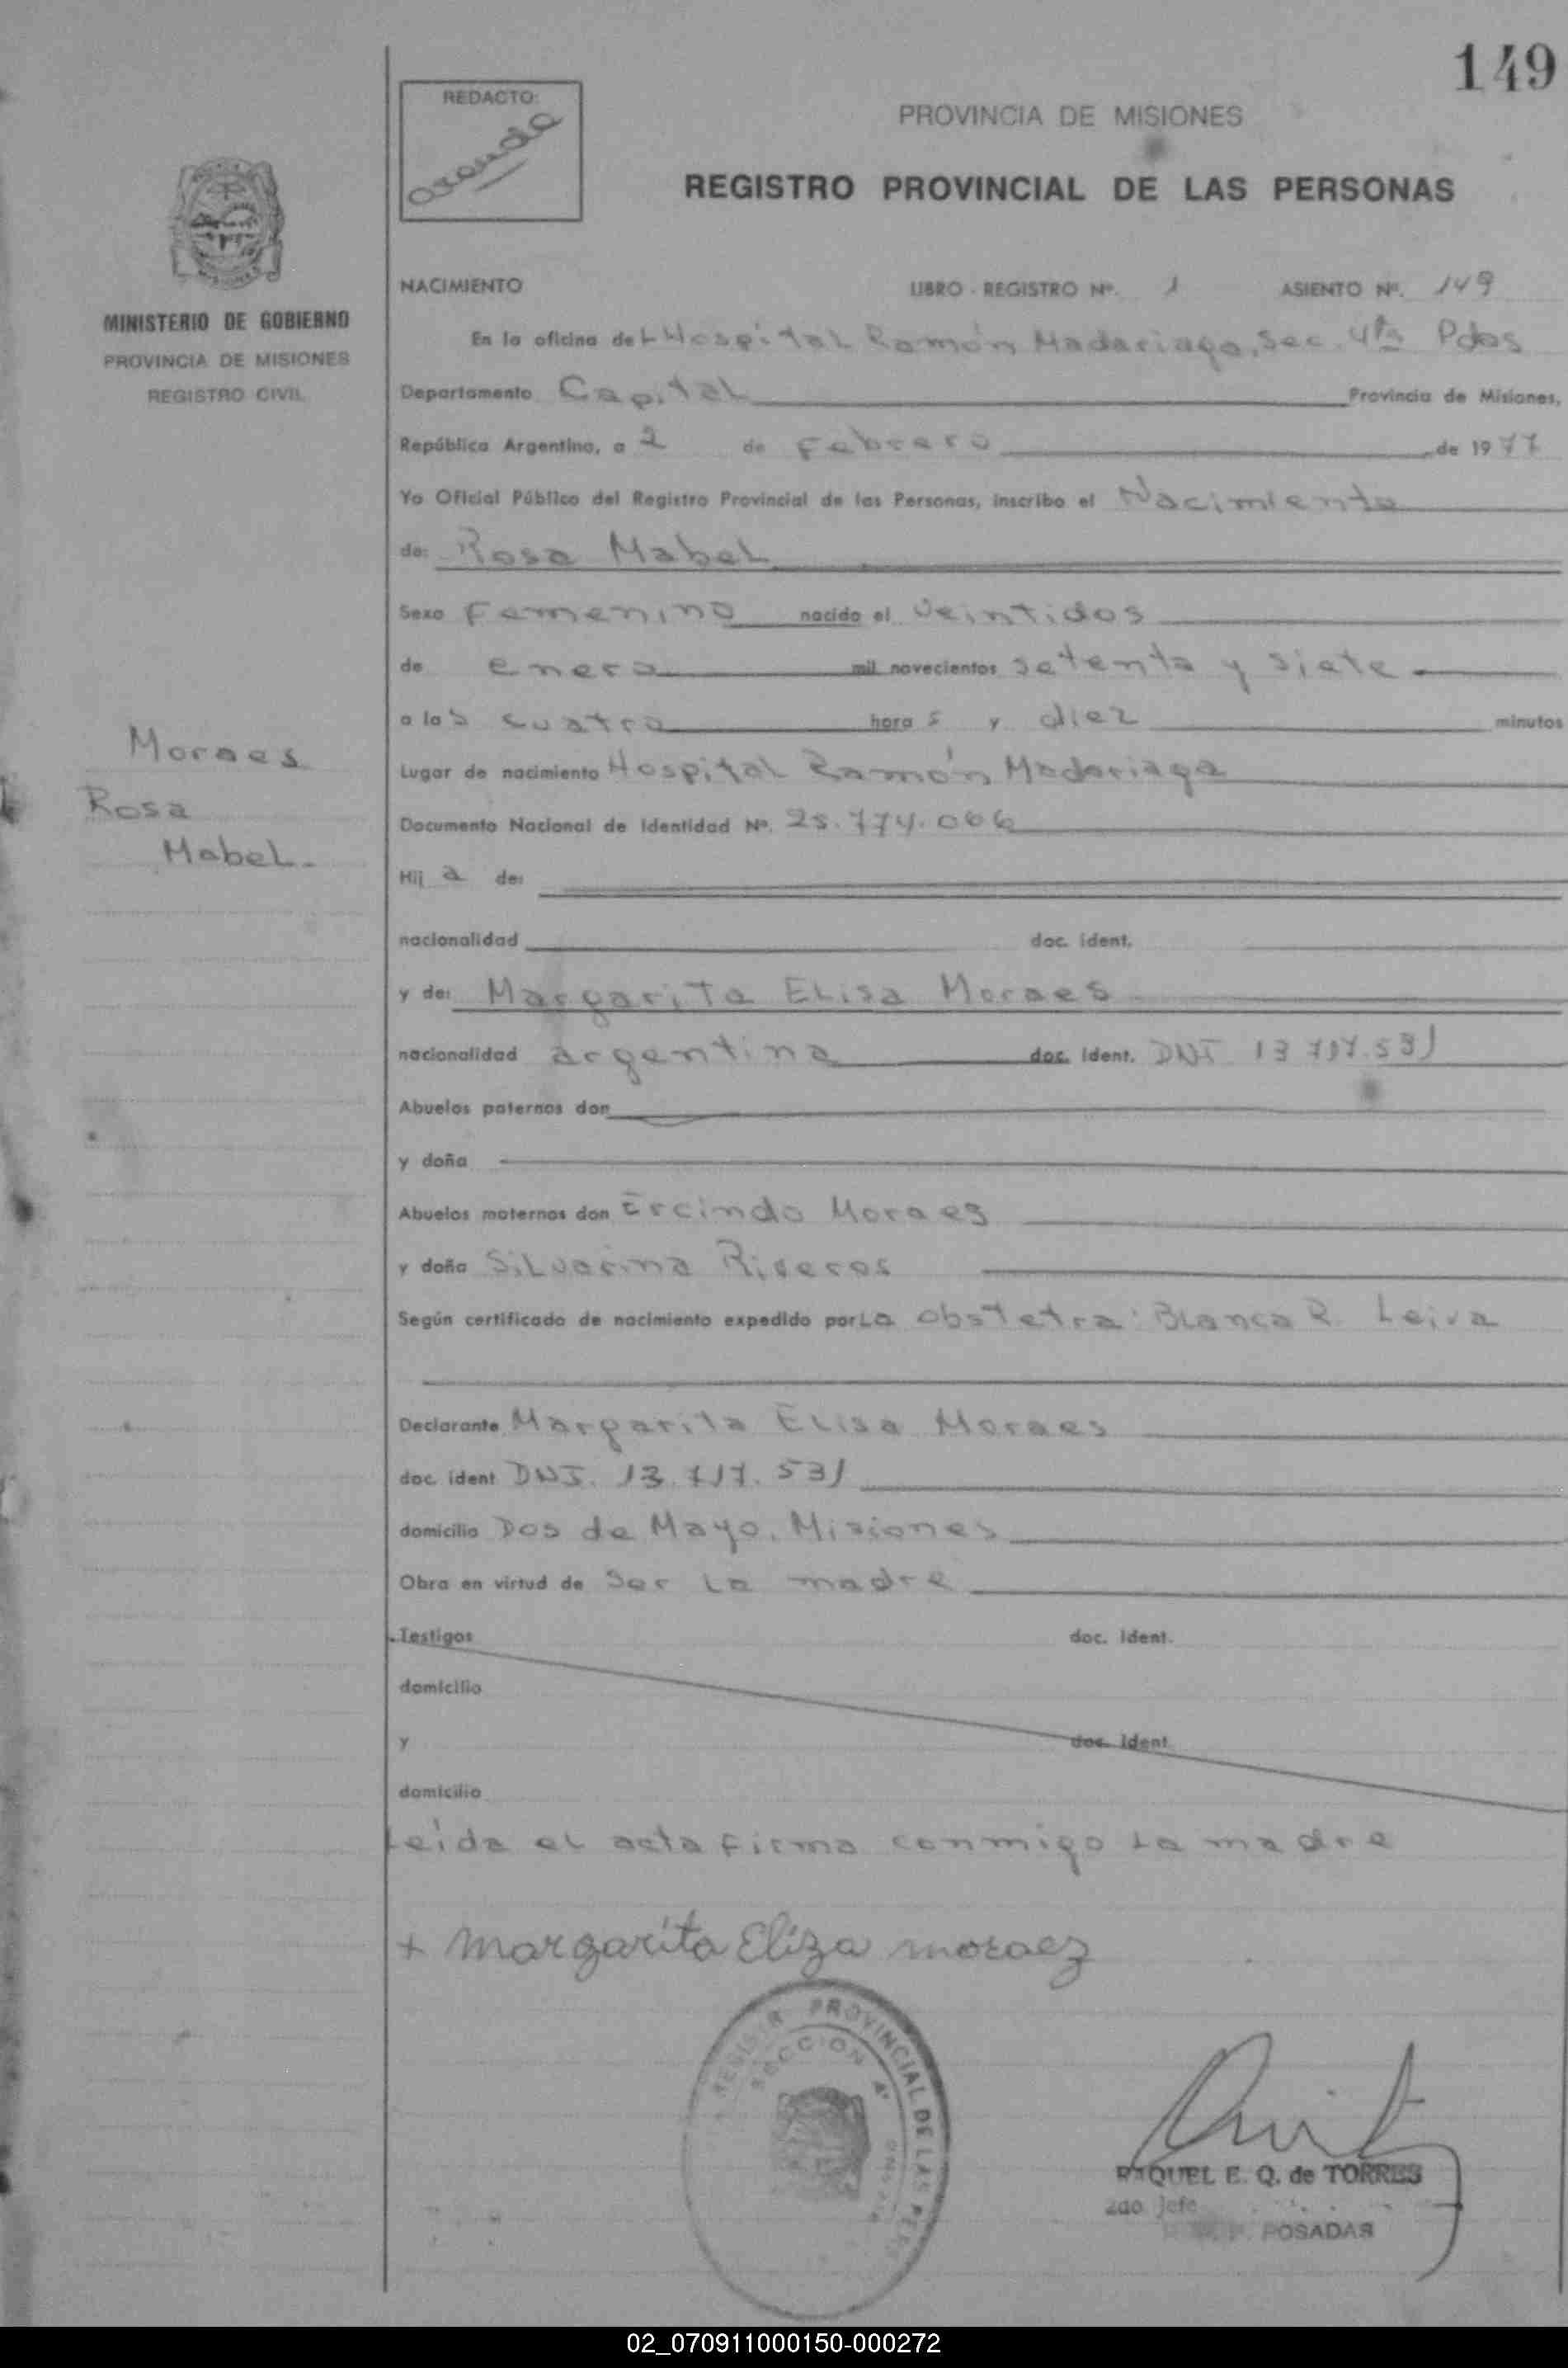 149
REDACTO:
PROVINCIA DE MISIONES
REGISTRO PROVINCIAL DE LAS PERSONAS
MINISTERIO DE GOBIERNO
PROVINCIA DE MISIONES
REGISTRO CIVIL
NACIMIENTO LIBRO - REGISTRO Nº. 1 ASIENTO Nº. 149
En la oficina del Hospital Ramón Madariaga, Sec. 4ta Pdas
Departamento Capital Provincia de Misiones,
República Argentina, a 2 de Febrero de 1977
Yo Oficial Público del Registro Provincial de las Personas, inscribo el Nacimiento
de: Rosa Mabel
Sexo Femenino nacido el Veintidos
de enero mil novecientos setenta y siete
a las cuatro horas y diez minutos
Moraes
Rosa
Mabel-
Lugar de nacimiento Hospital Ramón Madariaga
Documento Nacional de Identidad Nº. 25.774.066
Hija de:
nacionalidad doc. ident.
y de: Margarita Elisa Moraes
nacionalidad argentina doc. ident. DNI 13.717.531
Abuelos paternos don
y doña
Abuelos maternos don Ercindo Moraes
y doña Silvarina Riveros
Según certificado de nacimiento expedido por La obstetra: Blanca R. Leiva
Declarante Margarita Elisa Moraes
doc. ident DNI. 13.717.531
domicilio Dos de Mayo, Misiones
Obra en virtud de ser la madre
Testigos doc. ident.
domicilio
y doc. ident.
domicilio
Leida el acta firma conmigo la madre
+ Margarita Eliza moraez
PROVINCIAL DE LAS PERS
SECCION 4ª
RAQUEL E. Q. de TORRES
2do Jefe
POSADAS
02_070911000150-000272